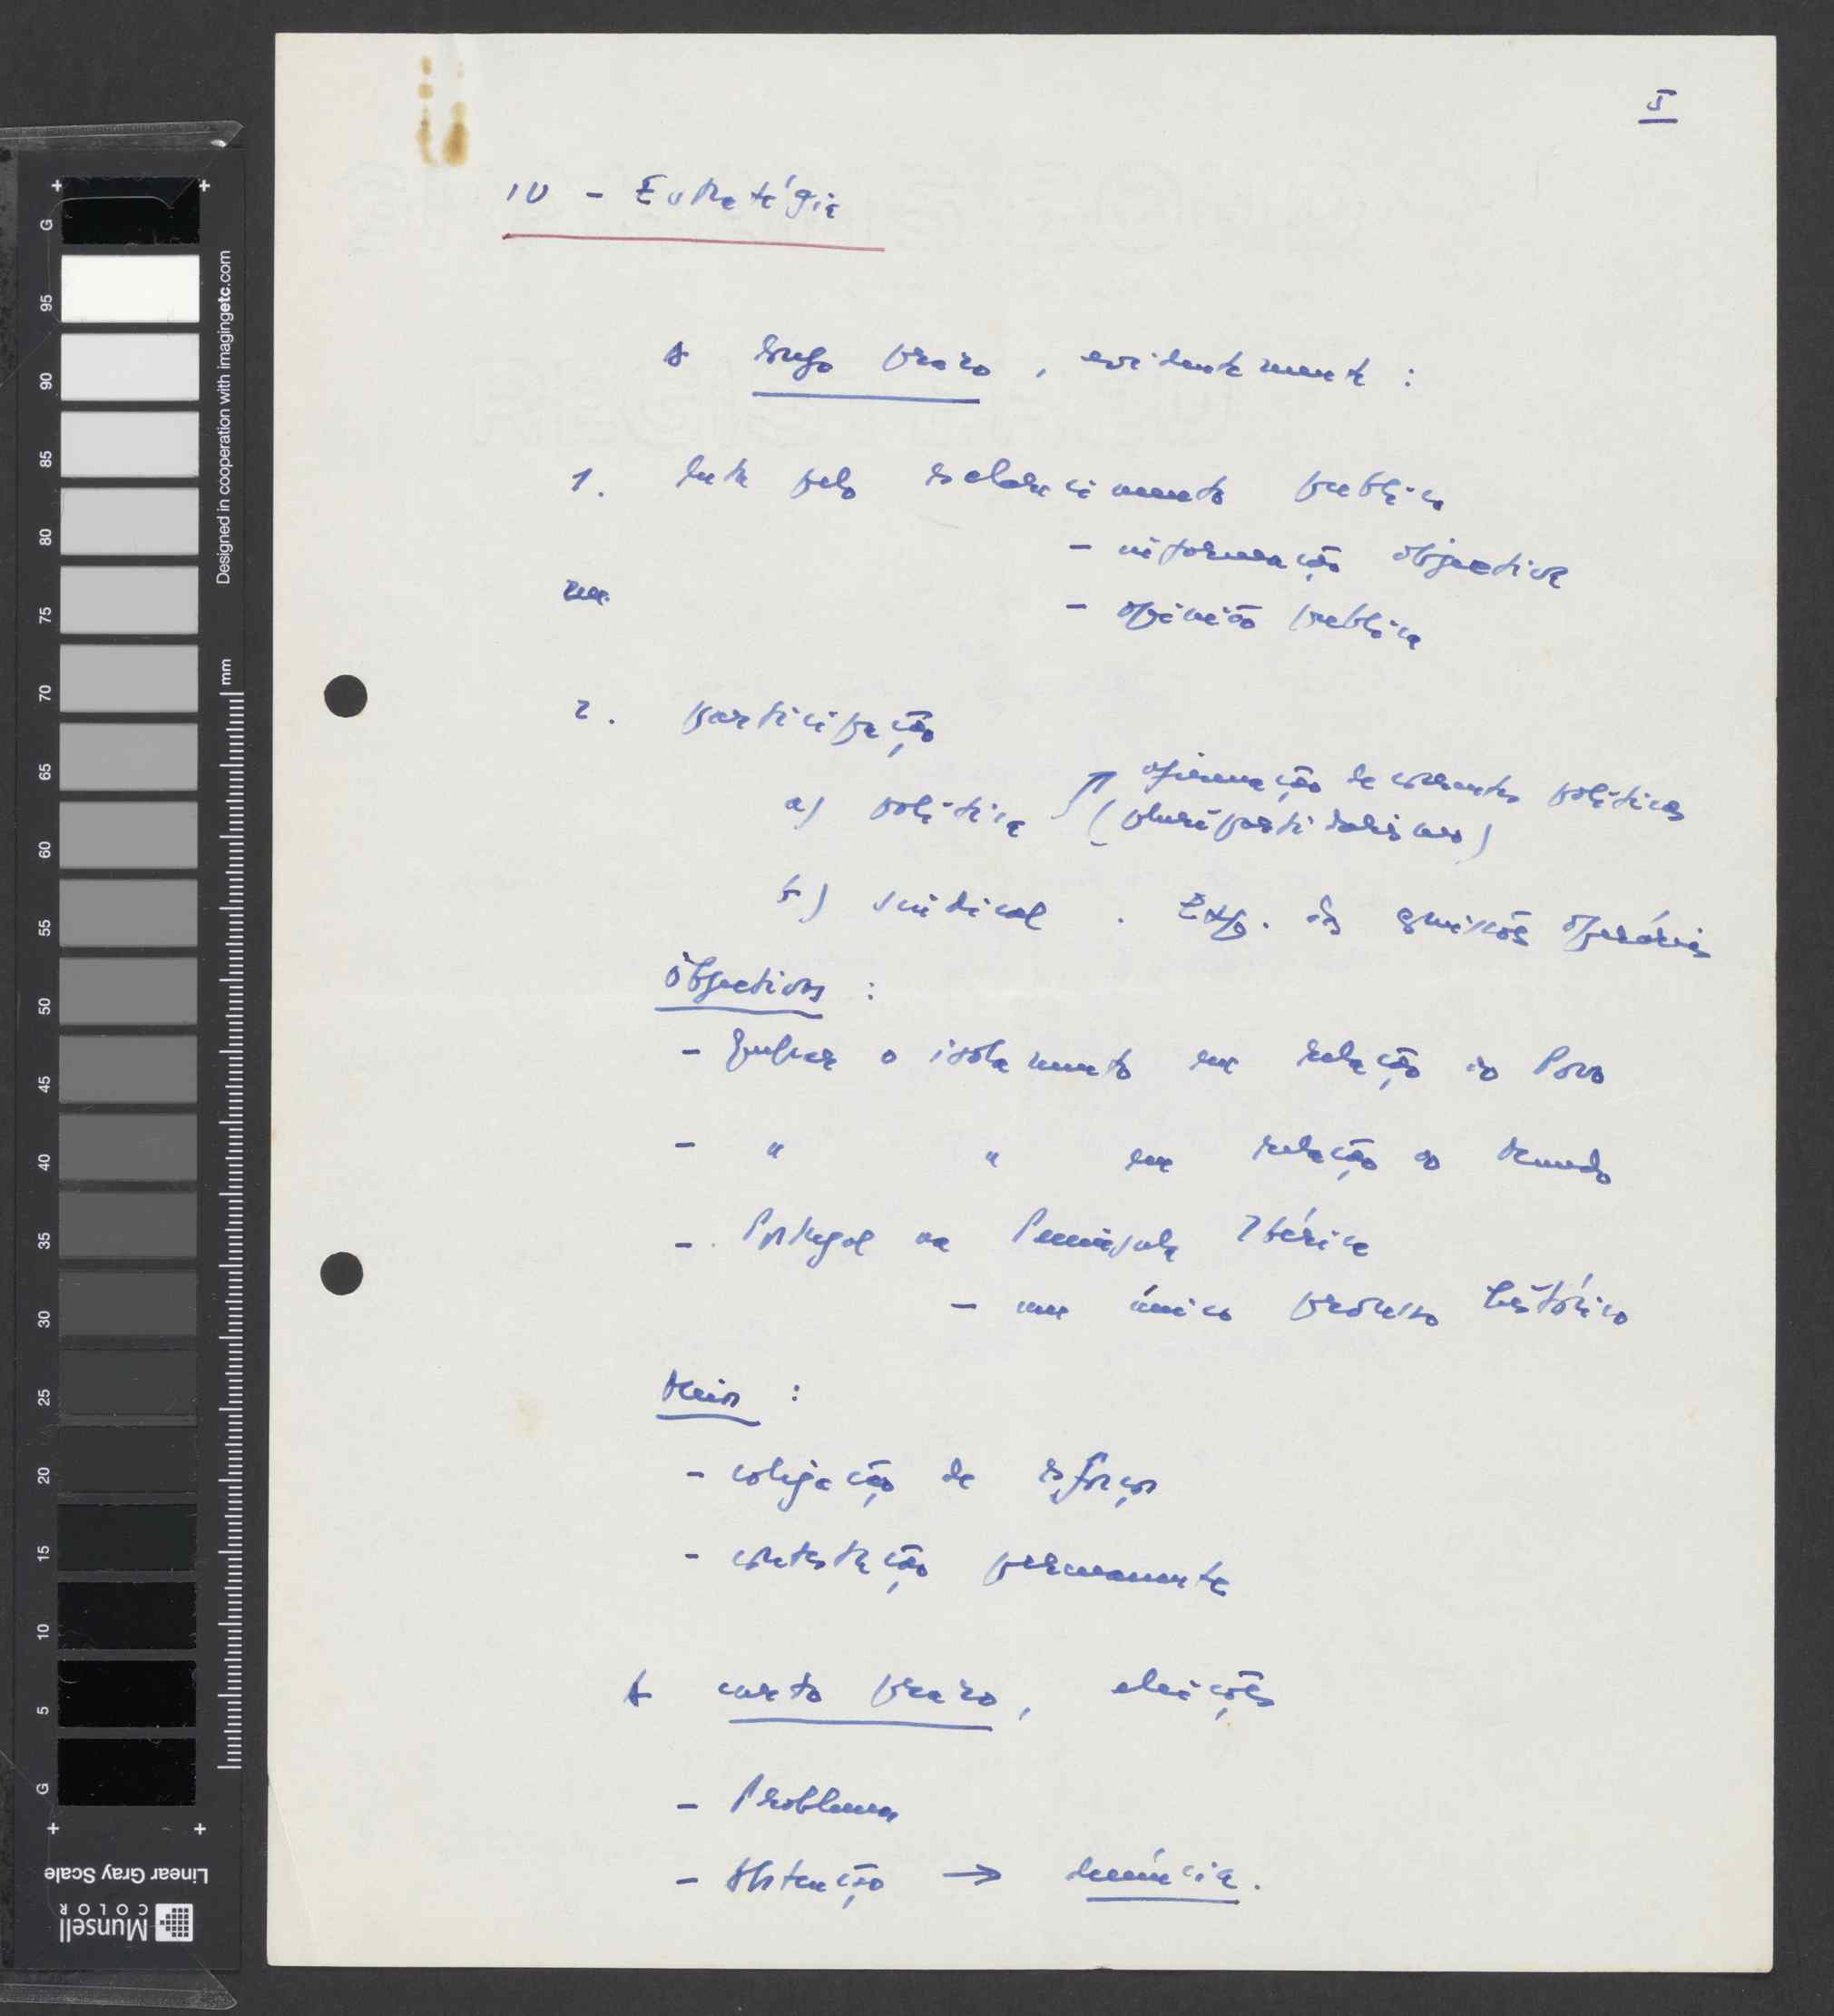 5
IV - Estratégia
A longo prazo, evidentemente :
1. luta pelo esclarecimento público
- informação objectiva
- opinião pública
2. participação
a) política ↗ afirmação de correntes políticas
(pluripartidarismo)
b) sindical . Exp. às comissões operárias
Objectivos :
- Quebrar o isolamento em relação ao Povo
- " " em relação ao Mundo
- Portugal na Península Ibérica
- um único processo histórico
Meios :
- coligação de esforços
- contestação permanente
A curto prazo, eleições
- Problemas
- Abstenção → denúncia.
G 95 90 85 80 75 70 65 60 55 50 45 40 35 30 25 20 15 10 5 G
Designed in cooperation with imagingetc.com
mm
Linear Gray Scale
Munsell
COLOR